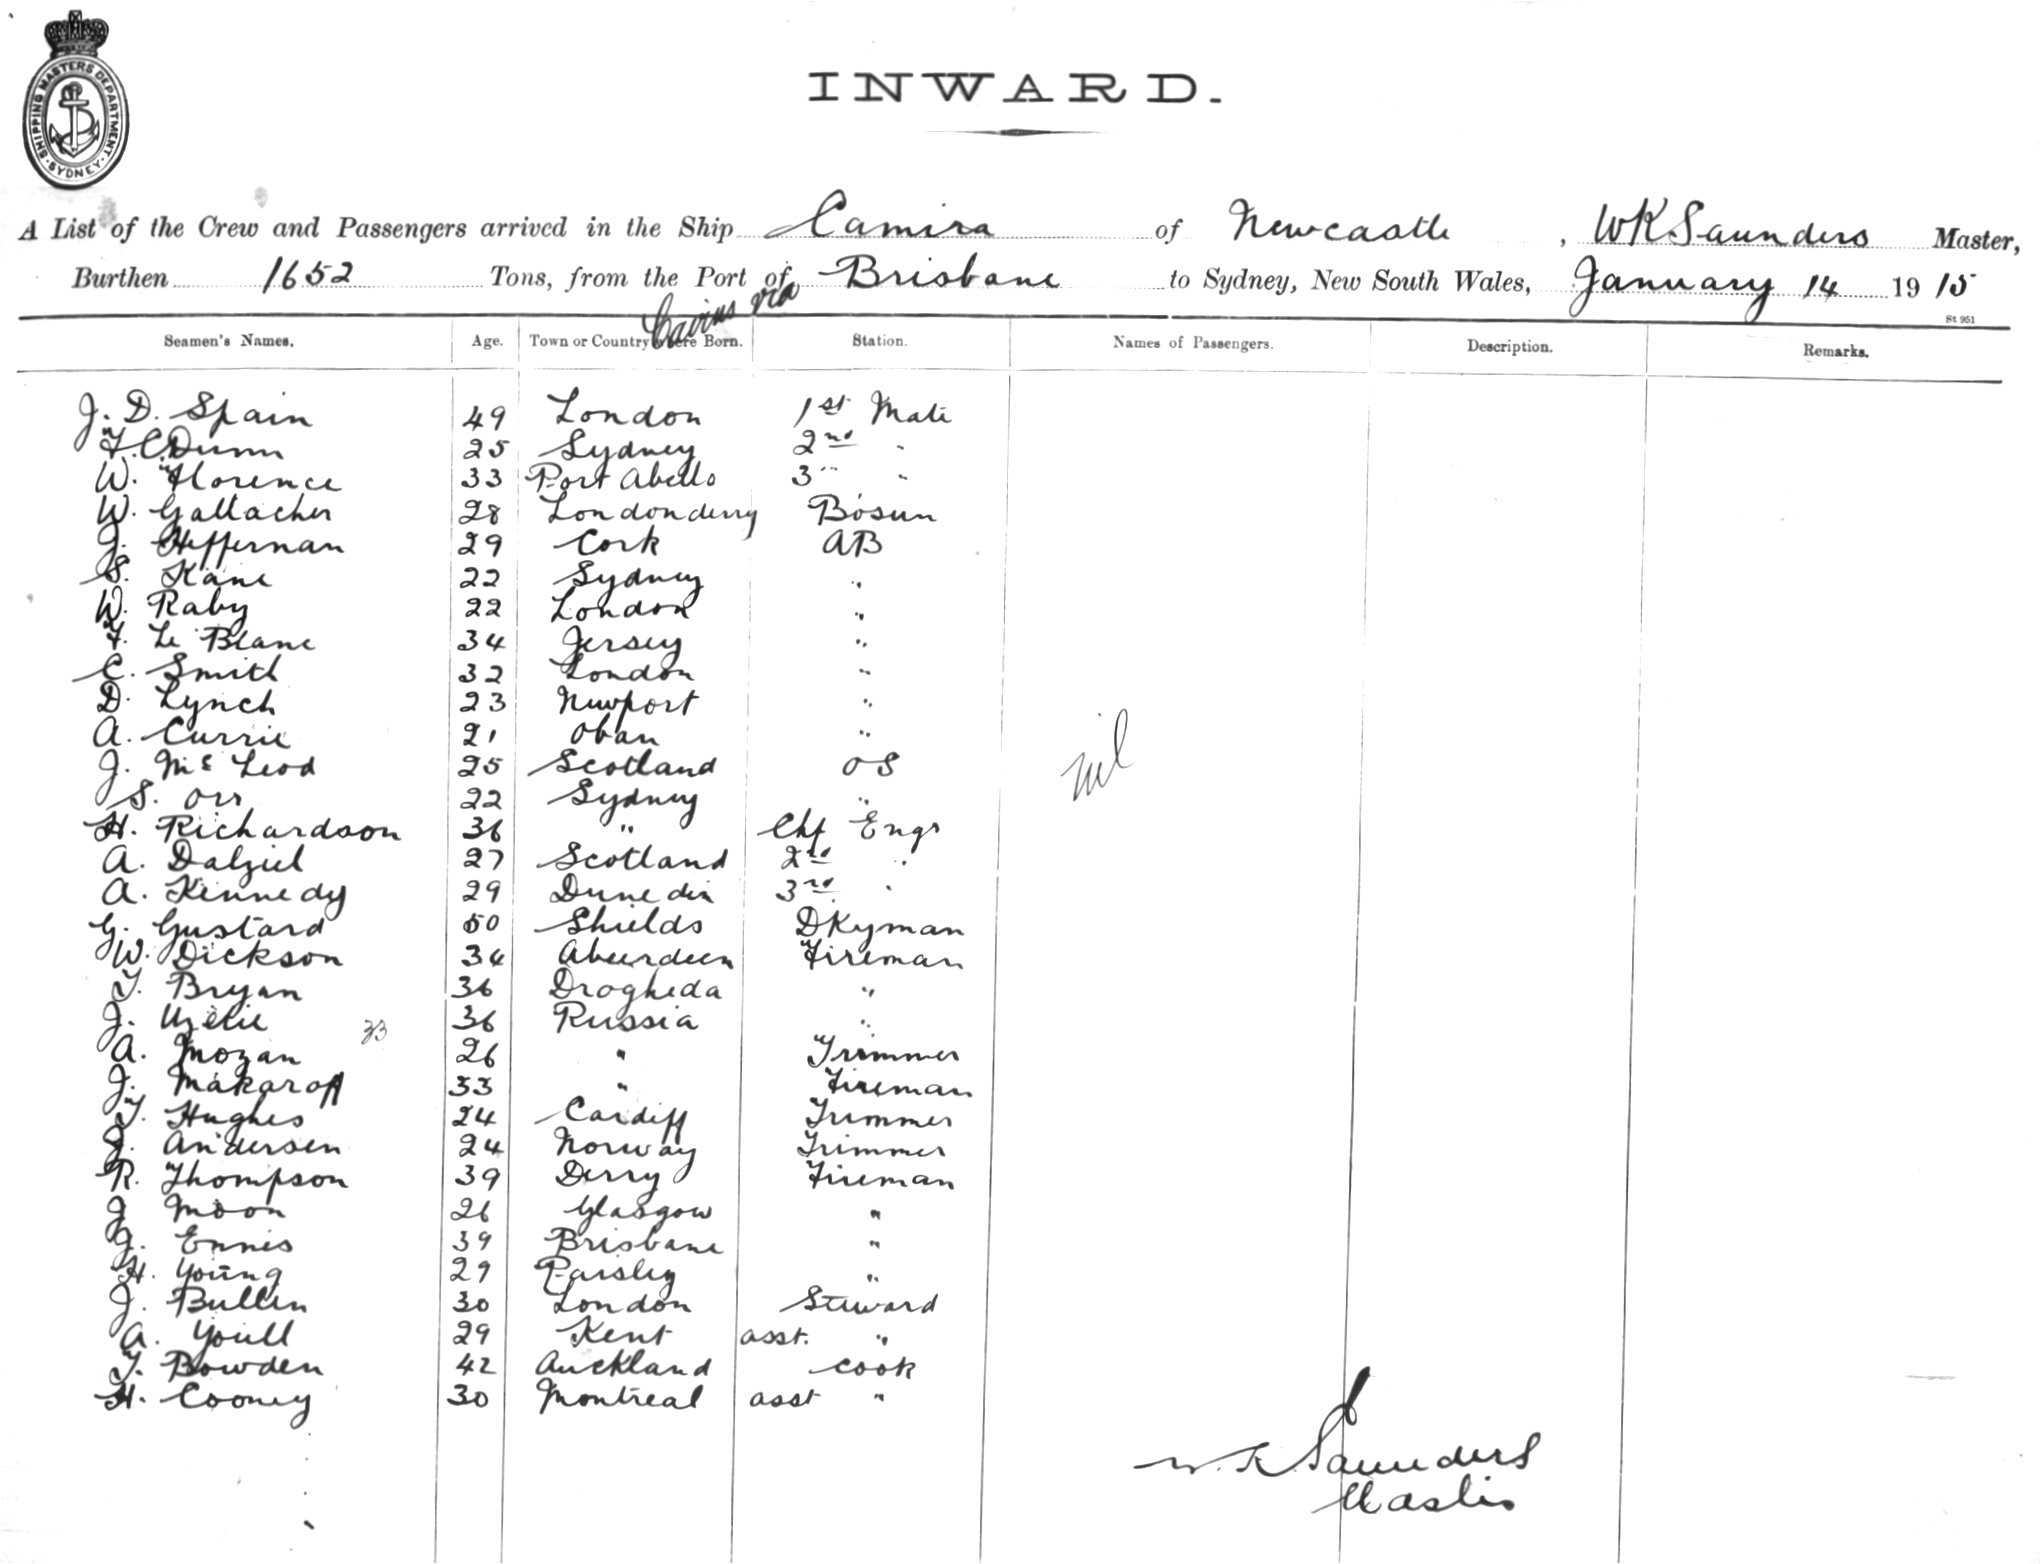 SHIPPING MASTERS DEPARTMENT · SYDNEY ·
INWARD.
A List of the Crew and Passengers arrived in the Ship Camira of Newcastle, WK Saunders Master,
Burthen 1652 Tons, from the Port of Brisbane to Sydney, New South Wales, January 14 1915
Cairns via
St 951
Seamen's Names. Age. Town or Country where Born. Station. Names of Passengers. Description. Remarks.
J. D. Spain 49 London 1st Mate
F. C. Dunn 25 Sydney 2nd "
W. Florence 33 Port Abello 3" "
W. Gallacher 28 Londonderry Bosun
J. Heffernan 29 Cork AB
S. Kane 22 Sydney "
W. Raby 22 London "
F. Le Blanc 34 Jersey "
C. Smith 32 London "
D. Lynch 23 Newport "
A. Currie 21 Oban "
J. Mc Leod 25 Scotland OS
nil
S. Orr 22 Sydney "
H. Richardson 36 " Chf Engr
A. Dalziel 27 Scotland 2nd "
A. Kennedy 29 Dunedin 3rd "
G. Gustard 50 Shields DKyman
W. Dickson 34 Aberdeen Fireman
T. Bryan 36 Drogheda "
J. 36 Russia "
A. Mozan 26 " Trimmer
J. Makaroff 33 " Fireman
T. Hughes 24 Cardiff Trimmer
J. Andersen 24 Norway Trimmer
R. Thompson 39 Derry Fireman
J Moon 26 Glasgow "
J. Ennis 39 Brisbane "
H. Young 29 Paisley "
J. Bullen 30 London Steward
A. Youll 29 Kent asst. "
T. Bowden 42 Auckland cook
H. Cooney 30 Montreal asst "
W. K. Saunders
Master